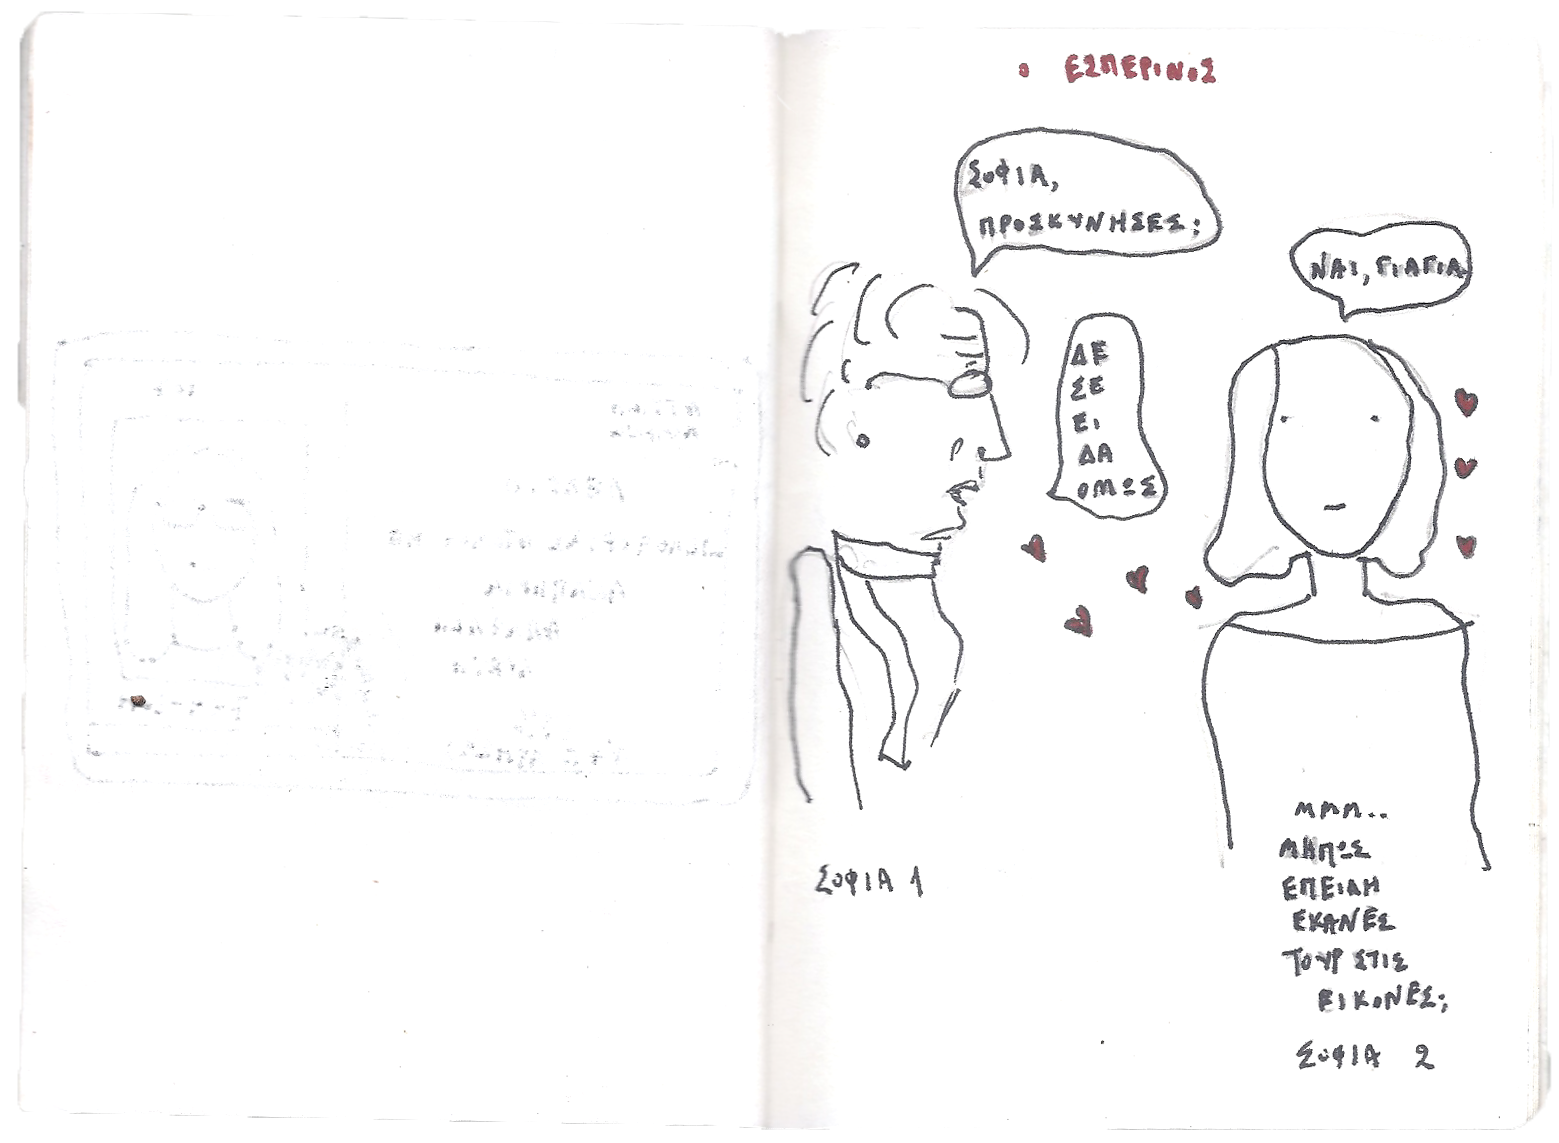 ο ΕΣΠΕΡΙΝΟΣ
ΣΟΦΙΑ,
ΠΡΟΣΚΥΝΗΣΕΣ;
ΝΑΙ, ΓΙΑΓΙΑ
ΔΕ
ΣΕ
ΕΙ
ΔΑ
ΟΜΩΣ
ΣΟΦΙΑ 1
ΜΜΜ..
ΜΗΠΩΣ
ΕΠΕΙΔΗ
ΕΚΑΝΕΣ
ΤΟΥΡ ΣΤΙΣ
ΕΙΚΟΝΕΣ;
ΣΟΦΙΑ 2